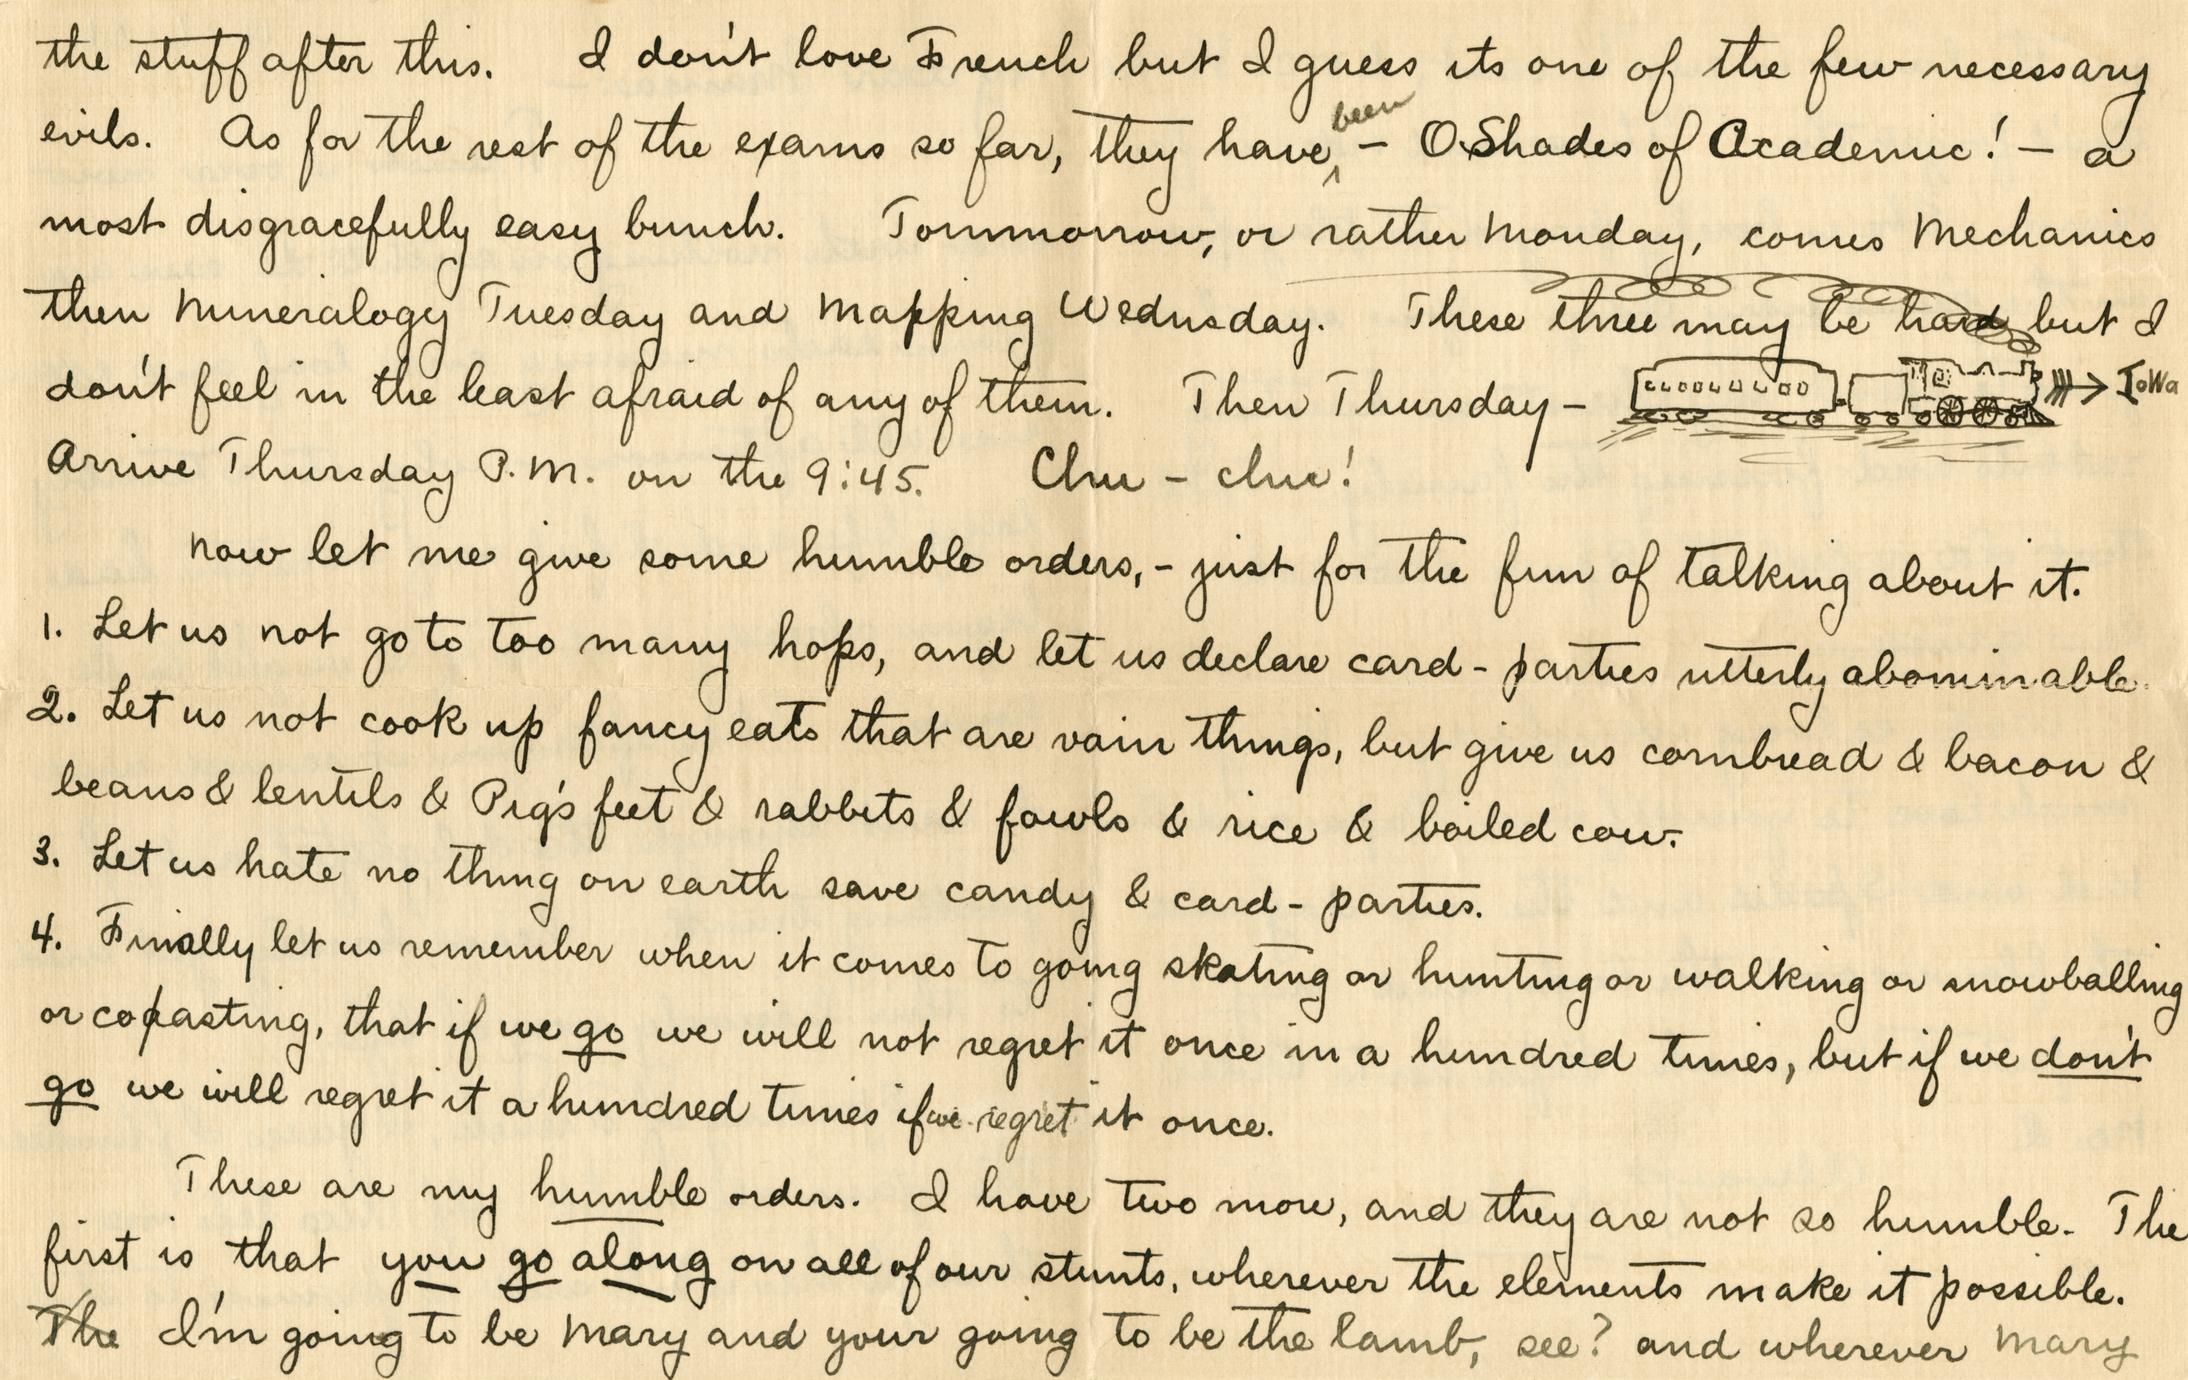 the stuff after this. I don't love French but I guess its one of the few necessary
evils. As for the rest of the exams so far, they have been - O Shades of Academic! - a
most disgracefully easy bunch. Tommorrow, or rather Monday, comes Mechanics
then Mineralogy Tuesday and Mapping Wednesday. These three may be hard but I
don't feel in the least afraid of any of them. Then Thursday - Iowa
Arrive Thursday P.M. on the 9:45. Chu - chu!
Now let me give some humble orders, - just for the fun of talking about it.
1. Let us not go to too many hops, and let us declare card-parties utterly abominable.
2. Let us not cook up fancy eats that are vain things, but give us cornbread & bacon &
beans & lentils & Pig's feet & rabbits & fowls & rice & boiled cow.
3. Let us hate no thing on earth save candy & card-parties.
4. Finally let us remember when it comes to going skating or hunting or walking or snowballing
or coasting, that if we go we will not regret it once in a hundred times, but if we don't
go we will regret it a hundred times if we regret it once.
These are my humble orders. I have two more, and they are not so humble. The
first is that you go along on all of our stunts, wherever the elements make it possible.
The I'm going to be Mary and your going to be the lamb, see? and wherever Mary